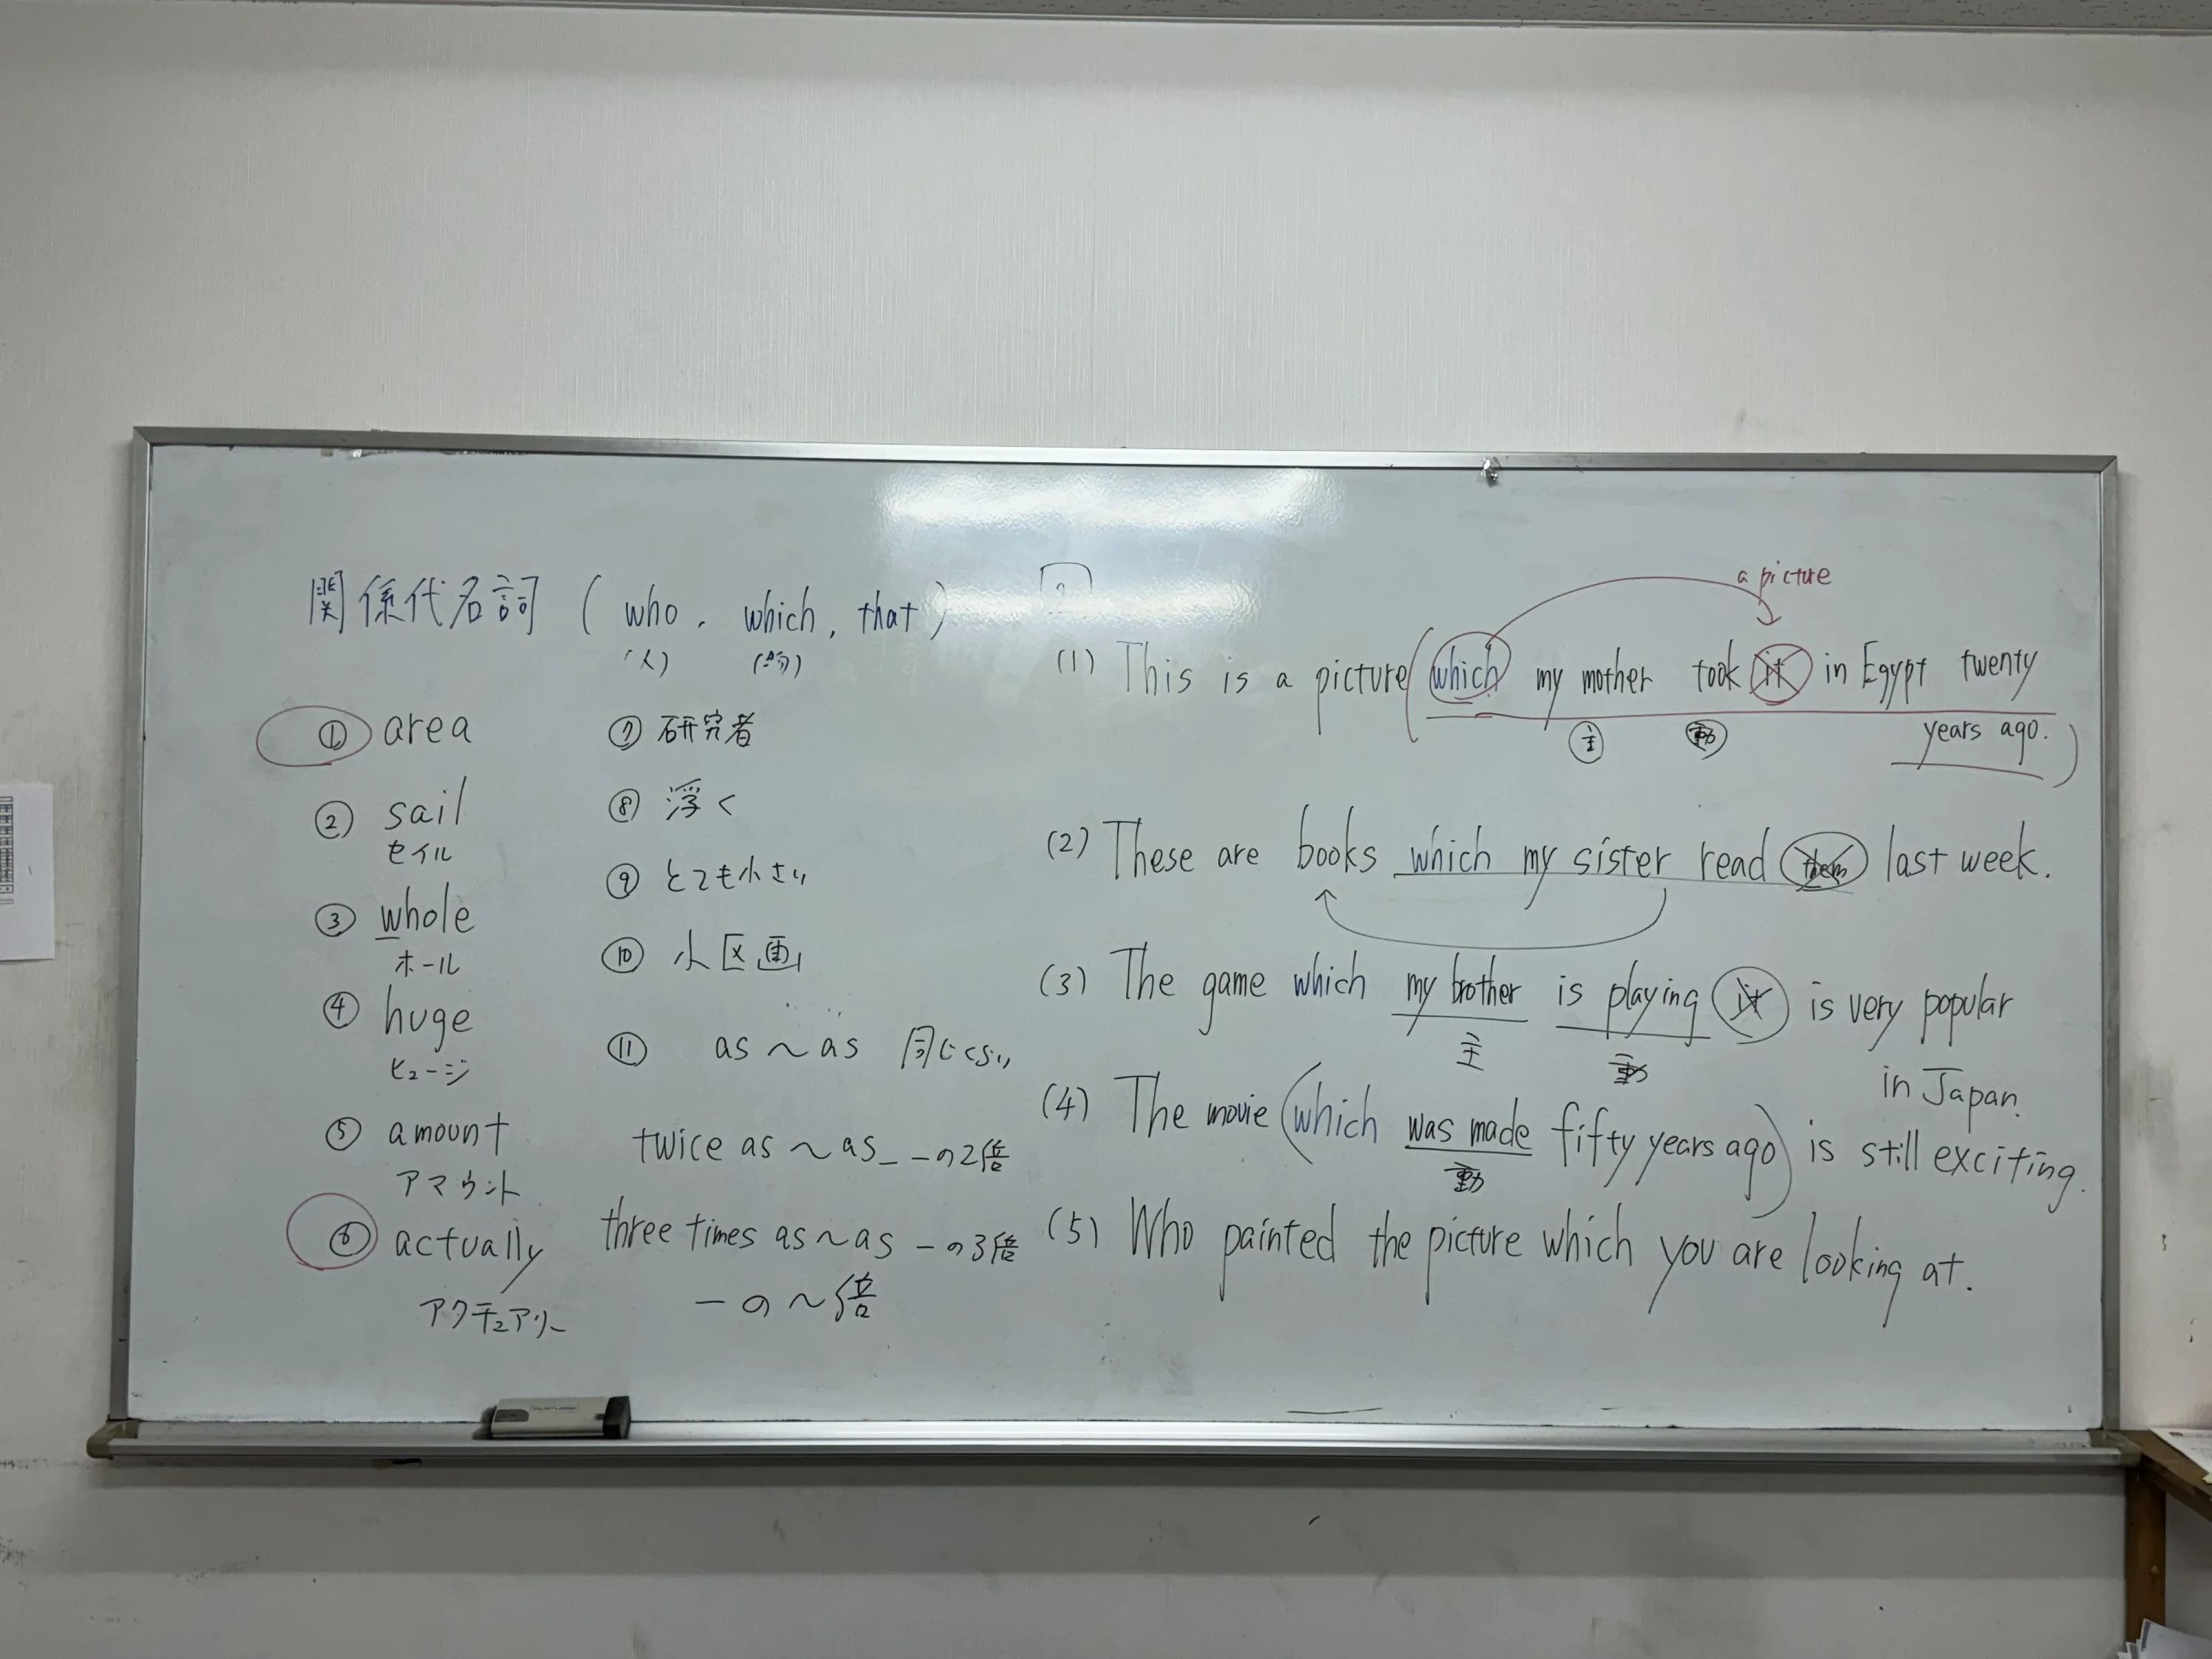 関係代名詞 ( who, which, that )
(人) (物)
① area
② sail
セイル
③ whole
ホール
④ huge
ヒュージ
⑤ amount
アマウント
⑥ actually
アクチュアリー
⑦ 研究者
⑧ 浮く
⑨ とても小さい
⑩ 小区画
⑪ as 〜 as 同じくらい
twice as 〜 as_ ーの2倍
three times as〜as ーの3倍
ーの〜倍
2
a picture
(1) This is a picture(which my mother took it in Egypt twenty
主 動 years ago.)
(2) These are books which my sister read them last week.
(3) The game which my brother is playing it is very popular
主 動 in Japan.
(4) The movie (which was made fifty years ago) is still exciting.
動
(5) Who painted the picture which you are looking at.